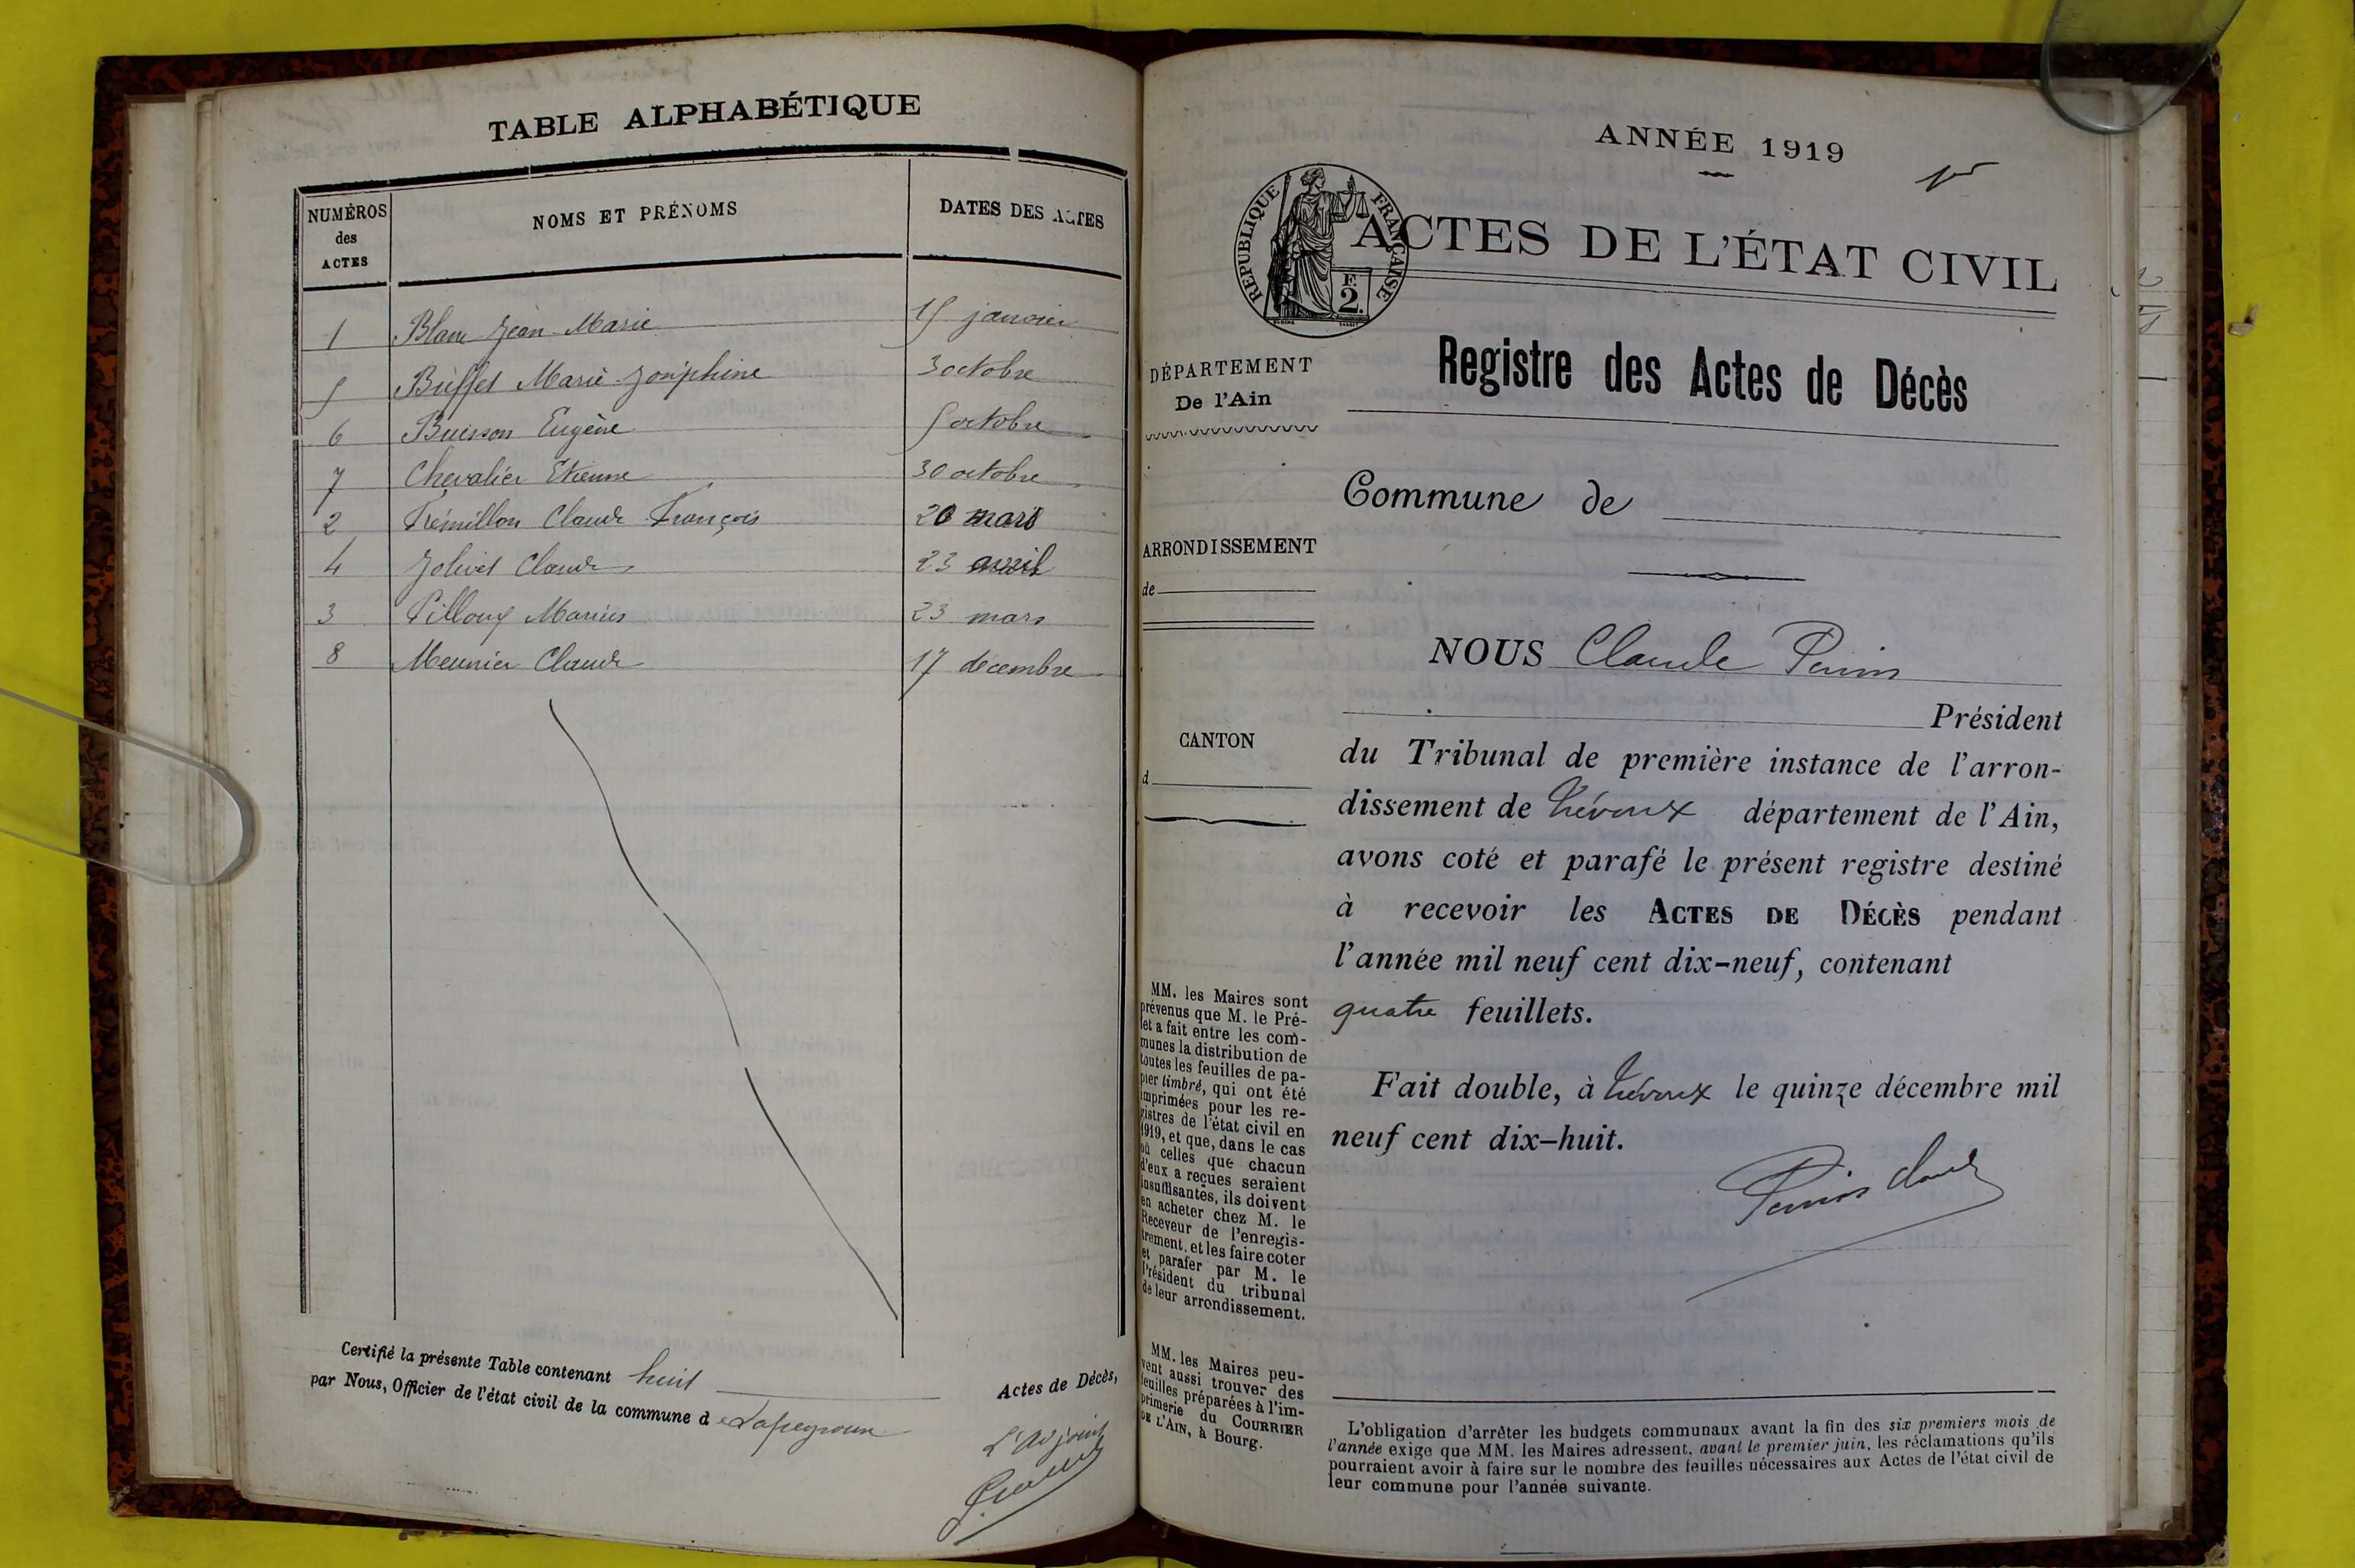 TABLE ALPHABÉTIQUE
NUMÉROS des ACTES
NOMS ET PRÉNOMS
DATES DES ACTES
1 Blanc Jean-Marie 15 janvier
5 Buffet Marie-Joséphine 3 octobre
6 Buisson Eugène 5 octobre
7 Chevalier Etienne 30 octobre
2 Frémillon Claude François 20 mars
4 Jolivet Claude 23 avril
3 Pilloux Marius 23 mars
8 Meunier Claude 17 décembre
Certifié la présente Table contenant huit Actes de Décès,
par Nous, Officier de l'état civil de la commune de Lapeyrouse
L'adjoint
ANNÉE 1919
RÉPUBLIQUE FRANÇAISE
F.
2.
ACTES DE L'ÉTAT CIVIL
Registre des Actes de Décès
DÉPARTEMENT
De l'Ain
Commune de
ARRONDISSEMENT
de
CANTON
d
NOUS Claude Perrin
Président
du Tribunal de première instance de l'arron-
dissement de Trévoux département de l'Ain,
avons coté et parafé le présent registre destiné
à recevoir les ACTES DE DÉCÈS pendant
l'année mil neuf cent dix-neuf, contenant
quatre feuillets.
Fait double, à Trévoux le quinze décembre mil
neuf cent dix-huit.
Perrin Claude
MM. les Maires sont
prévenus que M. le Pré-
fet a fait entre les com-
munes la distribution de
toutes les feuilles de pa-
pier timbré, qui ont été
imprimées pour les re-
gistres de l'état civil en
1919, et que, dans le cas
où celles que chacun
d'eux a reçues seraient
insuffisantes, ils doivent
en acheter chez M. le
Receveur de l'enregis-
trement, et les faire coter
et parafer par M. le
Président du tribunal
de leur arrondissement.
MM. les Maires peu-
vent aussi trouver des
feuilles préparées à l'im-
primerie du COURRIER
DE L'AIN, à Bourg.
L'obligation d'arrêter les budgets communaux avant la fin des six premiers mois de
l'année exige que MM. les Maires adressent, avant le premier juin, les réclamations qu'ils
pourraient avoir à faire sur le nombre des feuilles nécessaires aux Actes de l'état civil de
leur commune pour l'année suivante.